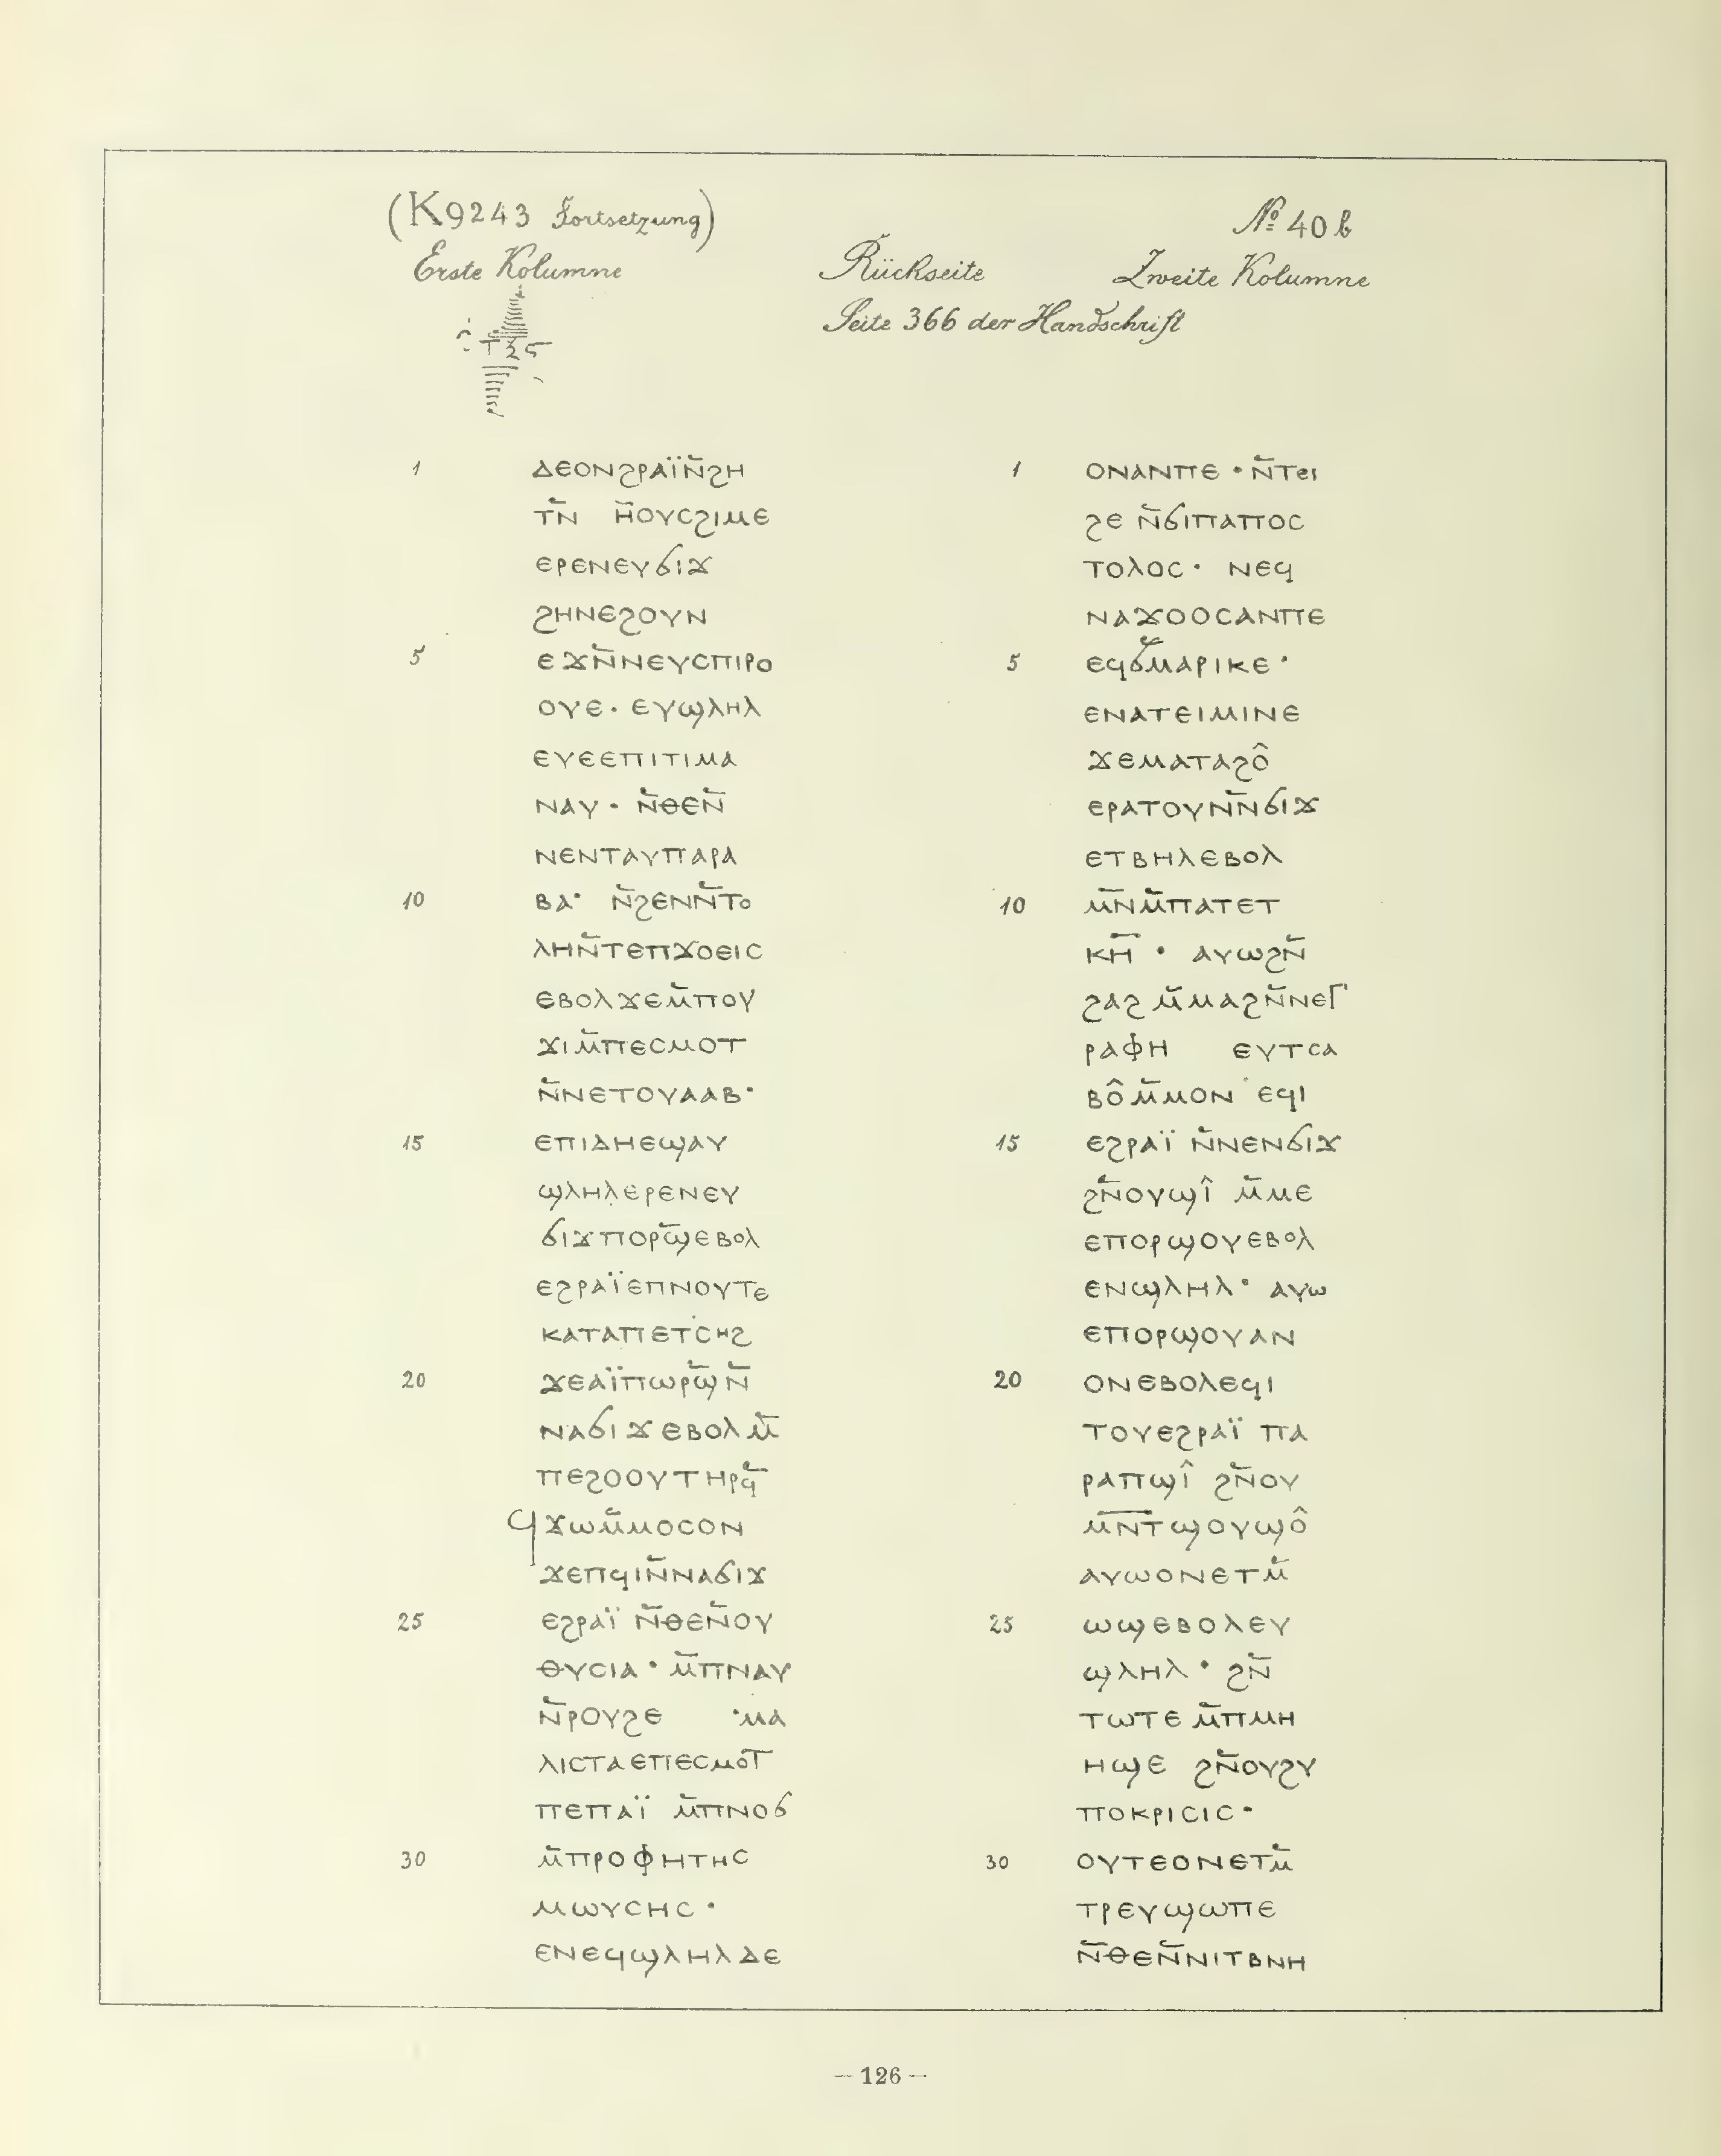 (K9243 Fortsetzung)
№ 40b
Erste Kolumne
Rückseite
Zweite Kolumne
Seite 366 der Handschrift
ⲧⲝⲋ
1 ⲇⲉⲟⲛϩⲣⲁⲓ̈ⲛ̄ϩⲏ
ⲧⲛ̄ ⲏ̄ⲟⲩⲥϩⲓⲙⲉ
ⲉⲣⲉⲛⲉⲩϭⲓϫ
ϩⲏⲛⲉϩⲟⲩⲛ
5 ⲉϫⲛ̄ⲛⲉⲩⲥⲡⲓⲣⲟ
ⲟⲩⲉ· ⲉⲩϣⲗⲏⲗ
ⲉⲩⲉⲉⲡⲓⲧⲓⲙⲁ
ⲛⲁⲩ· ⲛ̄ⲑⲉⲛ̄
ⲛⲉⲛⲧⲁⲩⲡⲁⲣⲁ
10 ⲃⲁ· ⲛ̄ϩⲉⲛⲛ̄ⲧⲟ
ⲗⲏⲛ̄ⲧⲉⲡϫⲟⲉⲓⲥ
ⲉⲃⲟⲗϫⲉⲙ̄ⲡⲟⲩ
ϫⲓⲙ̄ⲡⲉⲥⲙⲟⲧ
ⲛ̄ⲛⲉⲧⲟⲩⲁⲁⲃ·
15 ⲉⲡⲓⲇⲏⲉϣⲁⲩ
ϣⲗⲏⲗⲉⲣⲉⲛⲉⲩ
ϭⲓϫⲡⲟⲣϣ̄ⲉⲃⲟⲗ
ⲉϩⲣⲁⲓ̈ⲉⲡⲛⲟⲩⲧⲉ
ⲕⲁⲧⲁⲡⲉⲧⲥⲏϩ
20 ϫⲉⲁⲓ̈ⲡⲱⲣϣ̄ⲛ̄
ⲛⲁϭⲓϫⲉⲃⲟⲗⲙ̄
ⲡⲉϩⲟⲟⲩⲧⲏⲣϥ̄
ϥϫⲱⲙ̄ⲙⲟⲥⲟⲛ
ϫⲉⲡϥⲓⲛ̄ⲛⲁϭⲓϫ
25 ⲉϩⲣⲁⲓ̈ ⲛ̄ⲑⲉⲛ̄ⲟⲩ
ⲑⲩⲥⲓⲁ· ⲙ̄ⲡⲛⲁⲩ
ⲛ̄ⲣⲟⲩϩⲉ ·ⲙⲁ
ⲗⲓⲥⲧⲁⲉⲡⲉⲥⲙⲟⲧ
ⲡⲉⲡⲁⲓ̈ ⲙ̄ⲡⲛⲟϭ
30 ⲙ̄ⲡⲣⲟⲫⲏⲧⲏⲥ
ⲙⲱⲩⲥⲏⲥ·
ⲉⲛⲉϥϣⲗⲏⲗⲇⲉ
1 ⲟⲛⲁⲛⲡⲉ· ⲛ̄ⲧⲉⲓ
ϩⲉ ⲛ̄ϭⲓⲡⲁⲡⲟⲥ
ⲧⲟⲗⲟⲥ· ⲛⲉϥ
ⲛⲁϫⲟⲟⲥⲁⲛⲡⲉ
5 ⲉϥϭⲙⲁⲣⲓⲕⲉ·
ⲉⲛⲁⲧⲉⲓⲙⲓⲛⲉ
ϫⲉⲙⲁⲧⲁϩⲟ̂
ⲉⲣⲁⲧⲟⲩⲛ̄ⲛ̄ϭⲓϫ
ⲉⲧⲃⲏⲗⲉⲃⲟⲗ
10 ⲙ̄ⲛⲙ̄ⲡⲁⲧⲉⲧ
ⲕⲏ̄ · ⲁⲩⲱϩⲛ̄
ϩⲁϩ ⲙ̄ⲙⲁϩⲛ̄ⲛⲉⲅ
ⲣⲁⲫⲏ ⲉⲩⲧⲥⲁ
ⲃⲟ̂ⲙ̄ⲙⲟⲛ ⲉϥⲓ
15 ⲉϩⲣⲁⲓ̈ ⲛ̄ⲛⲉⲛϭⲓϫ
ϩⲛ̄ⲟⲩϣⲓ̂ ⲙ̄ⲙⲉ
ⲉⲡⲟⲣϣⲟⲩⲉⲃⲟⲗ
ⲉⲛϣⲗⲏⲗ· ⲁⲩⲱ
ⲉⲡⲟⲣϣⲟⲩⲁⲛ
20 ⲟⲛⲉⲃⲟⲗⲉϥⲓ
ⲧⲟⲩⲉϩⲣⲁⲓ̈ ⲡⲁ
ⲣⲁⲡϣⲓ̂ ϩⲛ̄ⲟⲩ
ⲙ̄ⲛ̄ⲧ̄ϣⲟⲩϣⲟ̂
ⲁⲩⲱⲟⲛⲉⲧⲙ̄
25 ⲱϣⲉⲃⲟⲗⲉⲩ
ϣⲗⲏⲗ· ϩⲛ̄
ⲧⲱⲧⲉ ⲙ̄ⲡⲙⲏ
ⲏϣⲉ ϩⲛ̄ⲟⲩϩⲩ
ⲡⲟⲕⲣⲓⲥⲓⲥ·
30 ⲟⲩⲧⲉⲟⲛⲉⲧⲙ̄
ⲧⲣⲉⲩϣⲱⲡⲉ
ⲛ̄ⲑⲉⲛ̄ⲛⲓⲧⲃⲛⲏ
— 126 —